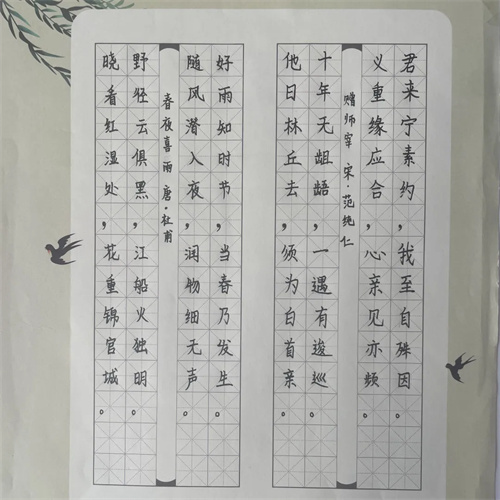 君来宁素约，我至自殊因。
义重缘应合，心亲见亦频。
赠师宰 宋·范纯仁
十年无龃龉，一遇有逡巡。
他日林丘去，须为白首亲。
好雨知时节，当春乃发生。
随风潜入夜，润物细无声。
春夜喜雨 唐·杜甫
野径云俱黑，江船火独明。
晓看红湿处，花重锦官城。